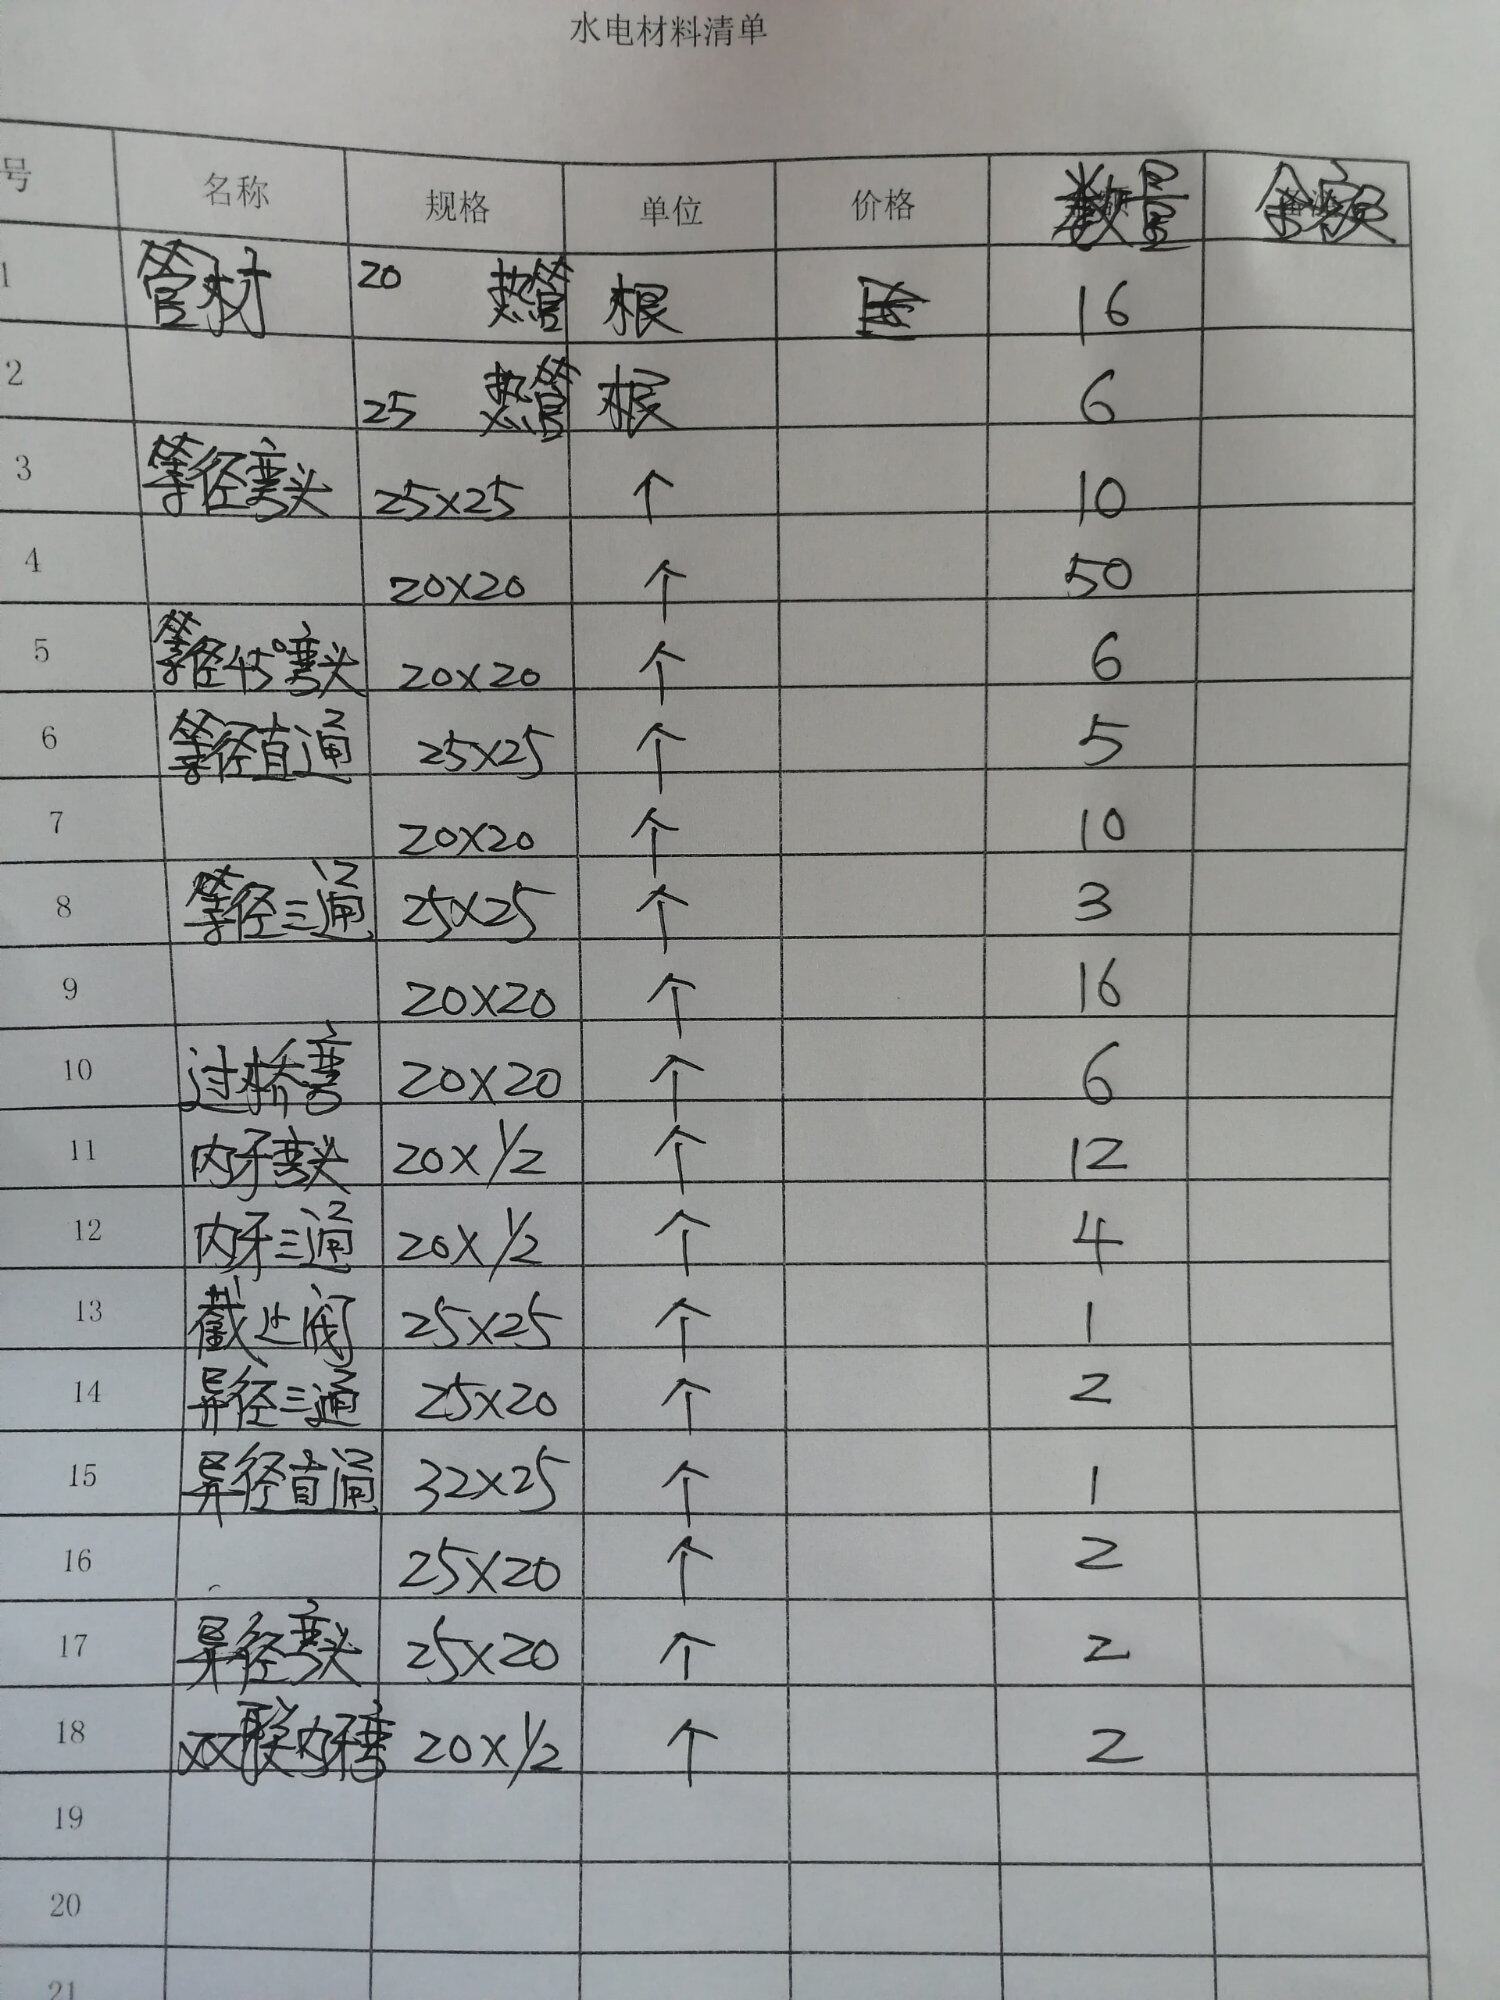 水电材料清单
号 名称 规格 单位 价格 数量 余额
1 管材 20 热管 根 16
2 25 热管 根 6
3 等径弯头 25×25 个 10
4 20×20 个 50
5 等径45°弯头 20×20 个 6
6 等径直通 25×25 个 5
7 20×20 个 10
8 等径三通 25×25 个 3
9 20×20 个 16
10 过桥弯 20×20 个 6
11 内牙弯头 20×1/2 个 12
12 内牙三通 20×1/2 个 4
13 截止阀 25×25 个 1
14 异径三通 25×20 个 2
15 异径直通 32×25 个 1
16 25×20 个 2
17 异径弯头 25×20 个 2
18 双联内牙弯 20×1/2 个 2
19
20
21